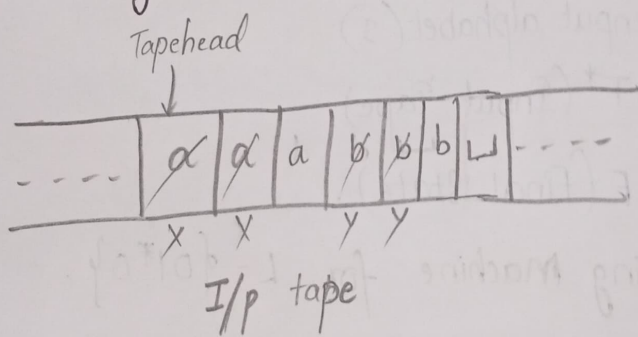 Tapehead
---- a a a b b b ⊔ ----
X X Y Y
I/p tape